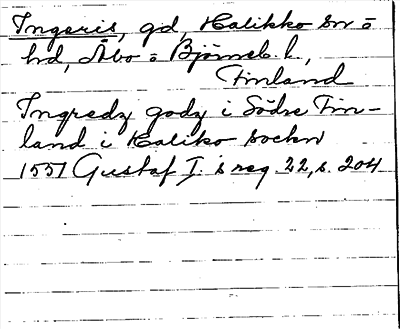 Ingeris, gd, Halikko sn o
hd, Åbo o Björneb. l.,
Finland
Ingredz godz i Södre Fin-
land i Haliko sockn
1551 Gustaf I. s reg 22, s. 204